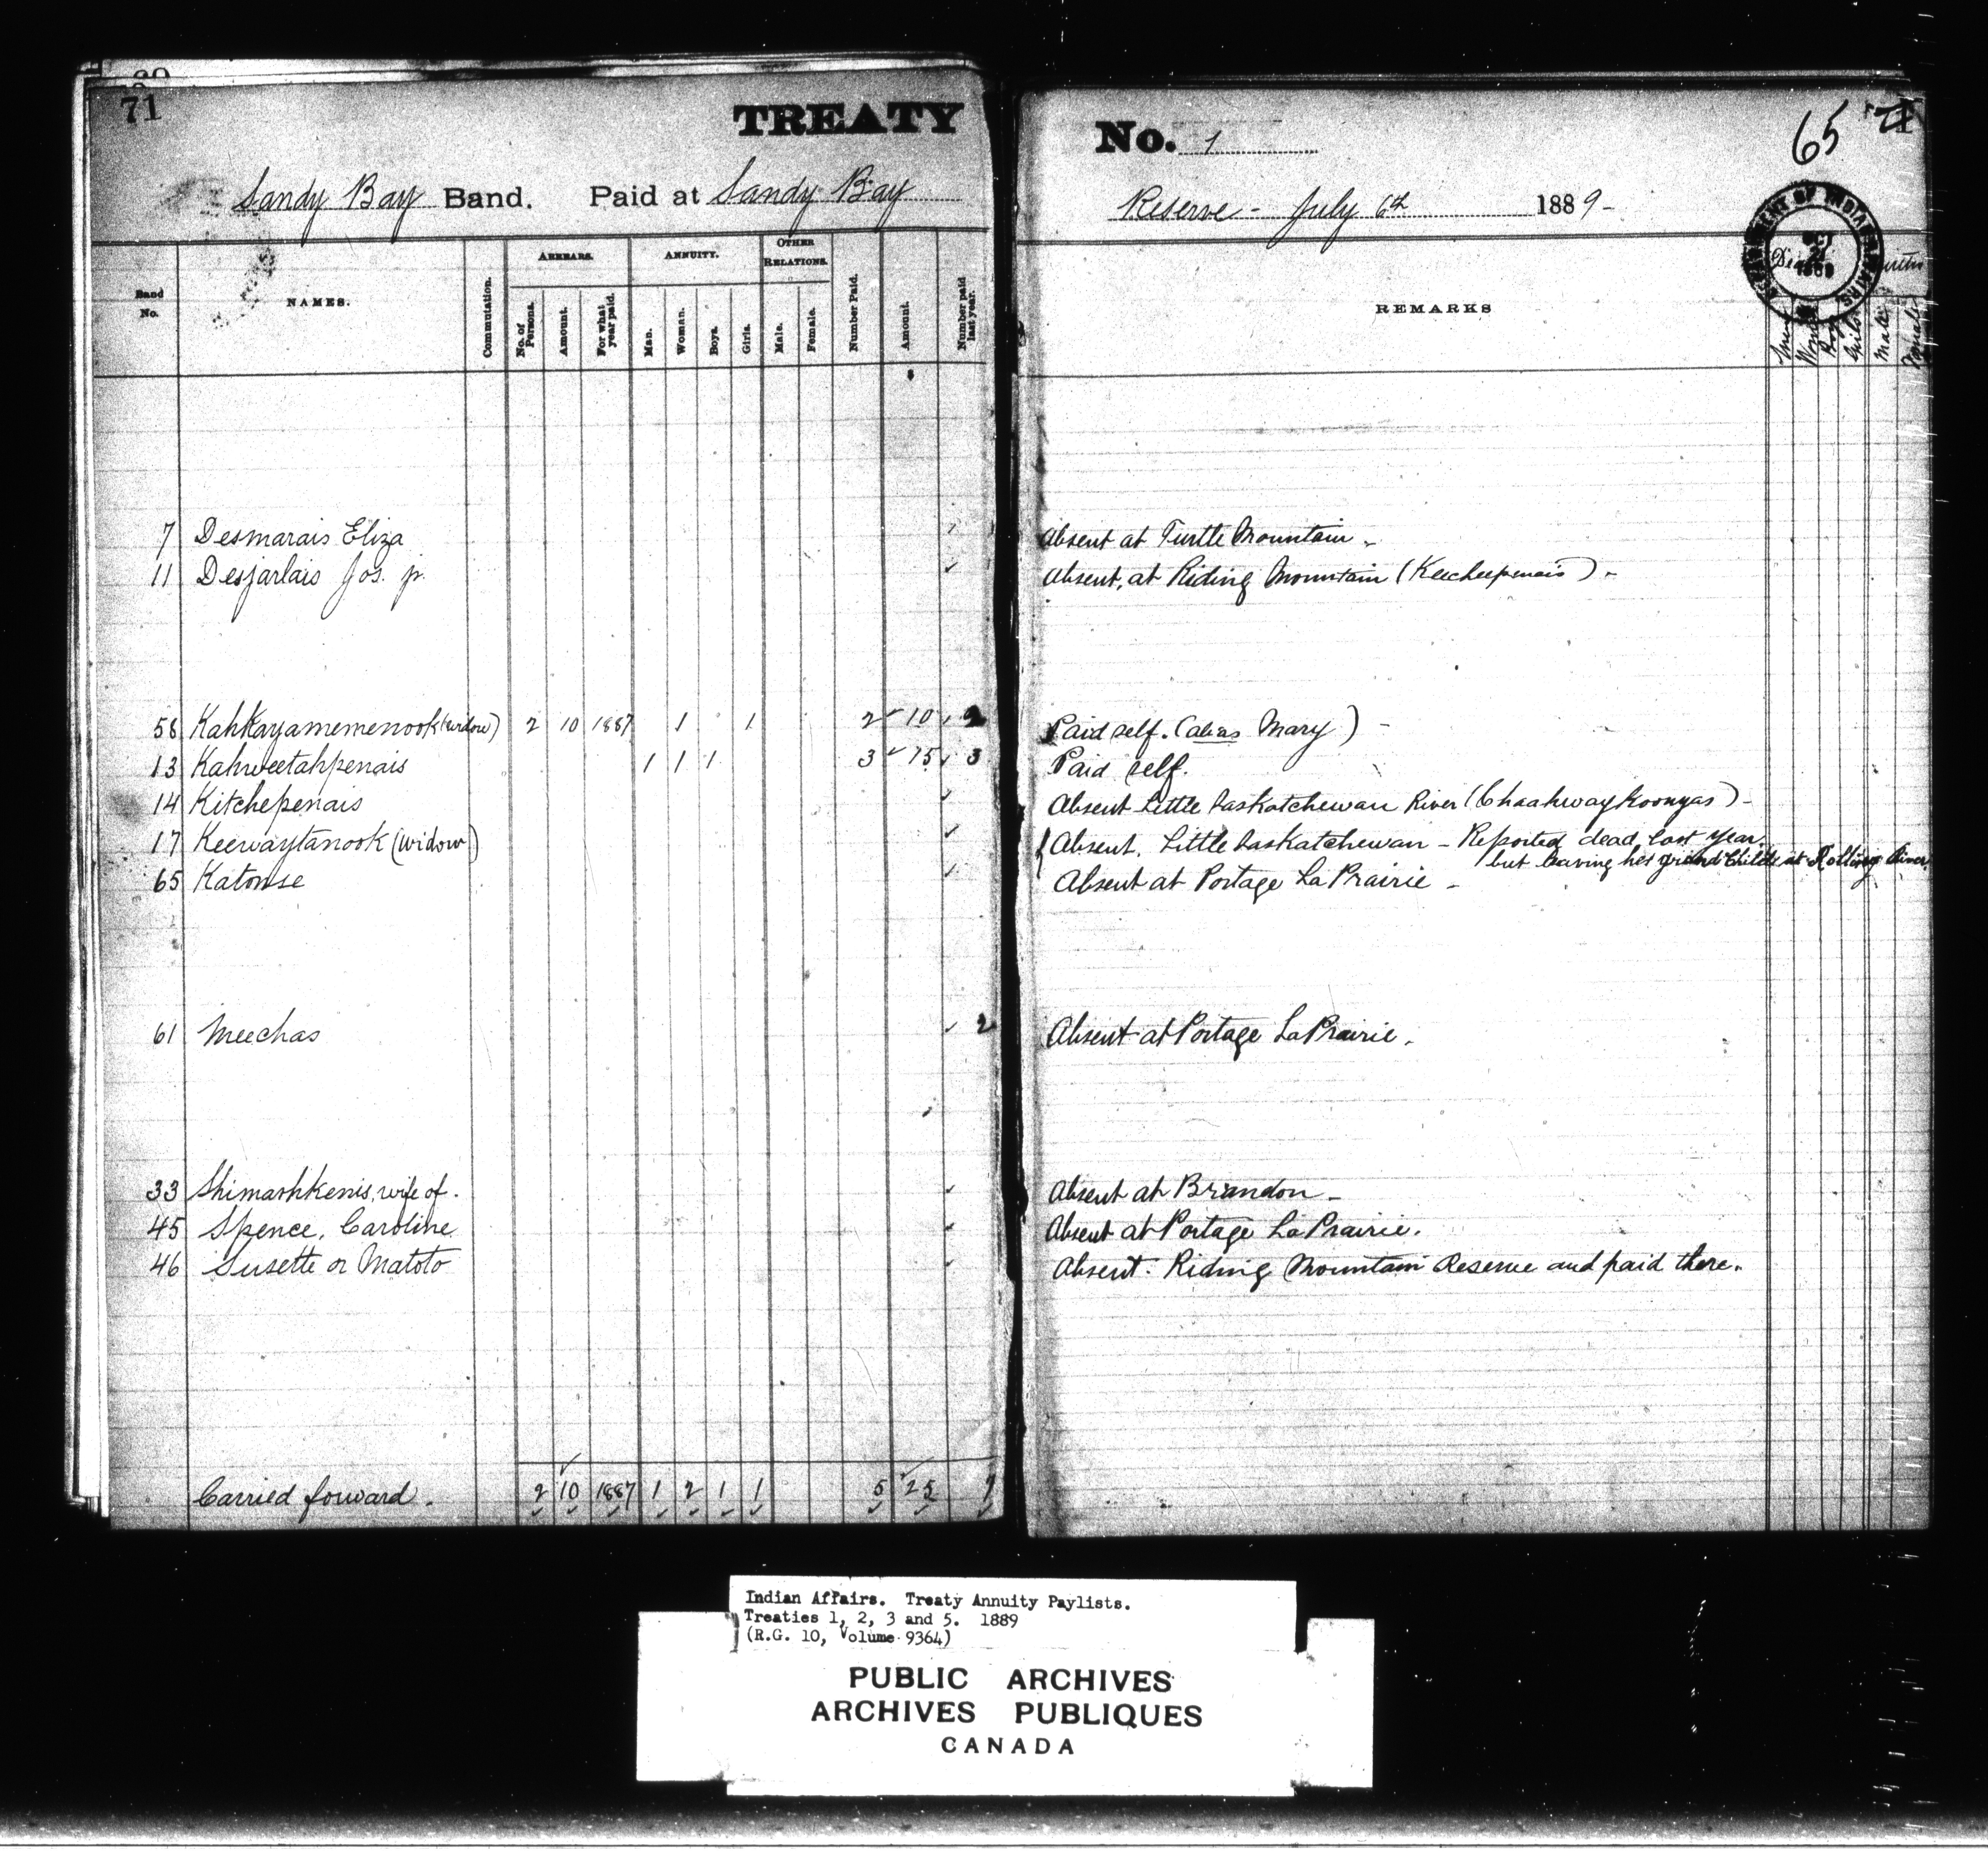 71
TREATY
Sandy Bay Band. Paid at Sandy Bay
Band No.
NAMES.
Commutation.
ARREARS.
No. of Persons.
Amount.
For what year paid.
ANNUITY.
Man.
Woman.
Boys.
Girls.
OTHER RELATIONS.
Male.
Female.
Number Paid.
Amount.
Number paid last year.
7 Desmarais Eliza
11 Desjarlais Jos. p.
58 Kahkayamemenook (widow) 2 10 1887 1 1 2 10 2
13 Kahweetahpenais 1 1 1 3 15 3
14 Kitchepenais
17 Keewaytanook (widow)
65 Katonse
61 Meechas 2
33 Shimashkenis, wife of.
45 Spence, Caroline
46 Susette or Matoto
Carried forward. 2 10 1887 1 2 1 1 5 25
No. 1
65 71
Reserve - July 6th 1889-
REMARKS
Absent at Turtle Mountain.
Absent, at Riding Mountain (Keecheepenais) -
Paid self. (alias Mary) -
Paid self.
Absent Little Saskatchewan River (Chaahwaykoonyas) -
Absent. Little Saskatchewan - Reported dead last year.
but leaving her grand child at Rolling River
Absent at Portage La Prairie -
Absent at Portage La Prairie.
Absent at Brandon -
Absent at Portage La Prairie.
Absent. Riding Mountain Reserve and paid there.
Indian Affairs. Treaty Annuity Paylists.
Treaties 1, 2, 3 and 5. 1889
(R.G. 10, Volume 9364)
PUBLIC ARCHIVES
ARCHIVES PUBLIQUES
CANADA